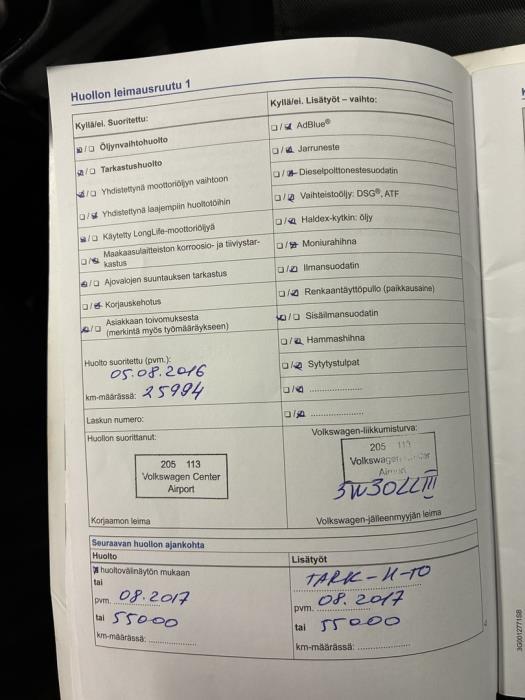 Huollon leimausruutu 1
Kyllä/ei. Suoritettu:
□/□ Öljynvaihtohuolto
□/□ Tarkastushuolto
□/□ Yhdistettynä moottoriöljyn vaihtoon
□/□ Yhdistettynä laajempiin huoltotöihin
□/□ Käytetty LongLife-moottoriöljyä
□/□ Maakaasulaitteiston korroosio- ja tiiviystar-
kastus
□/□ Ajovalojen suuntauksen tarkastus
□/□ Korjauskehotus
□/□ Asiakkaan toivomuksesta
(merkintä myös työmääräykseen)
Huolto suoritettu (pvm.):
05.08.2016
km-määrässä: 25994
Laskun numero:
Huollon suorittanut:
205 113
Volkswagen Center
Airport
Korjaamon leima
Kyllä/ei. Lisätyöt – vaihto:
□/□ AdBlue®
□/□ Jarruneste
□/□ Dieselpolttonestesuodatin
□/□ Vaihteistoöljy: DSG®, ATF
□/□ Haldex-kytkin: öljy
□/□ Moniurahihna
□/□ Ilmansuodatin
□/□ Renkaantäyttöpullo (paikkausaine)
□/□ Sisäilmansuodatin
□/□ Hammashihna
□/□ Sytytystulpat
□/□ ....................
□/□ ....................
Volkswagen-liikkumisturva:
205 113
Volkswagen
Volkswagen-jälleenmyyjän leima
Seuraavan huollon ajankohta
Huolto
huoltovälinäytön mukaan
tai
pvm. 08.2017
tai 55000
km-määrässä: ....................
Lisätyöt
TARK-H-TO
pvm. 08.2017
tai 55000
km-määrässä: ....................